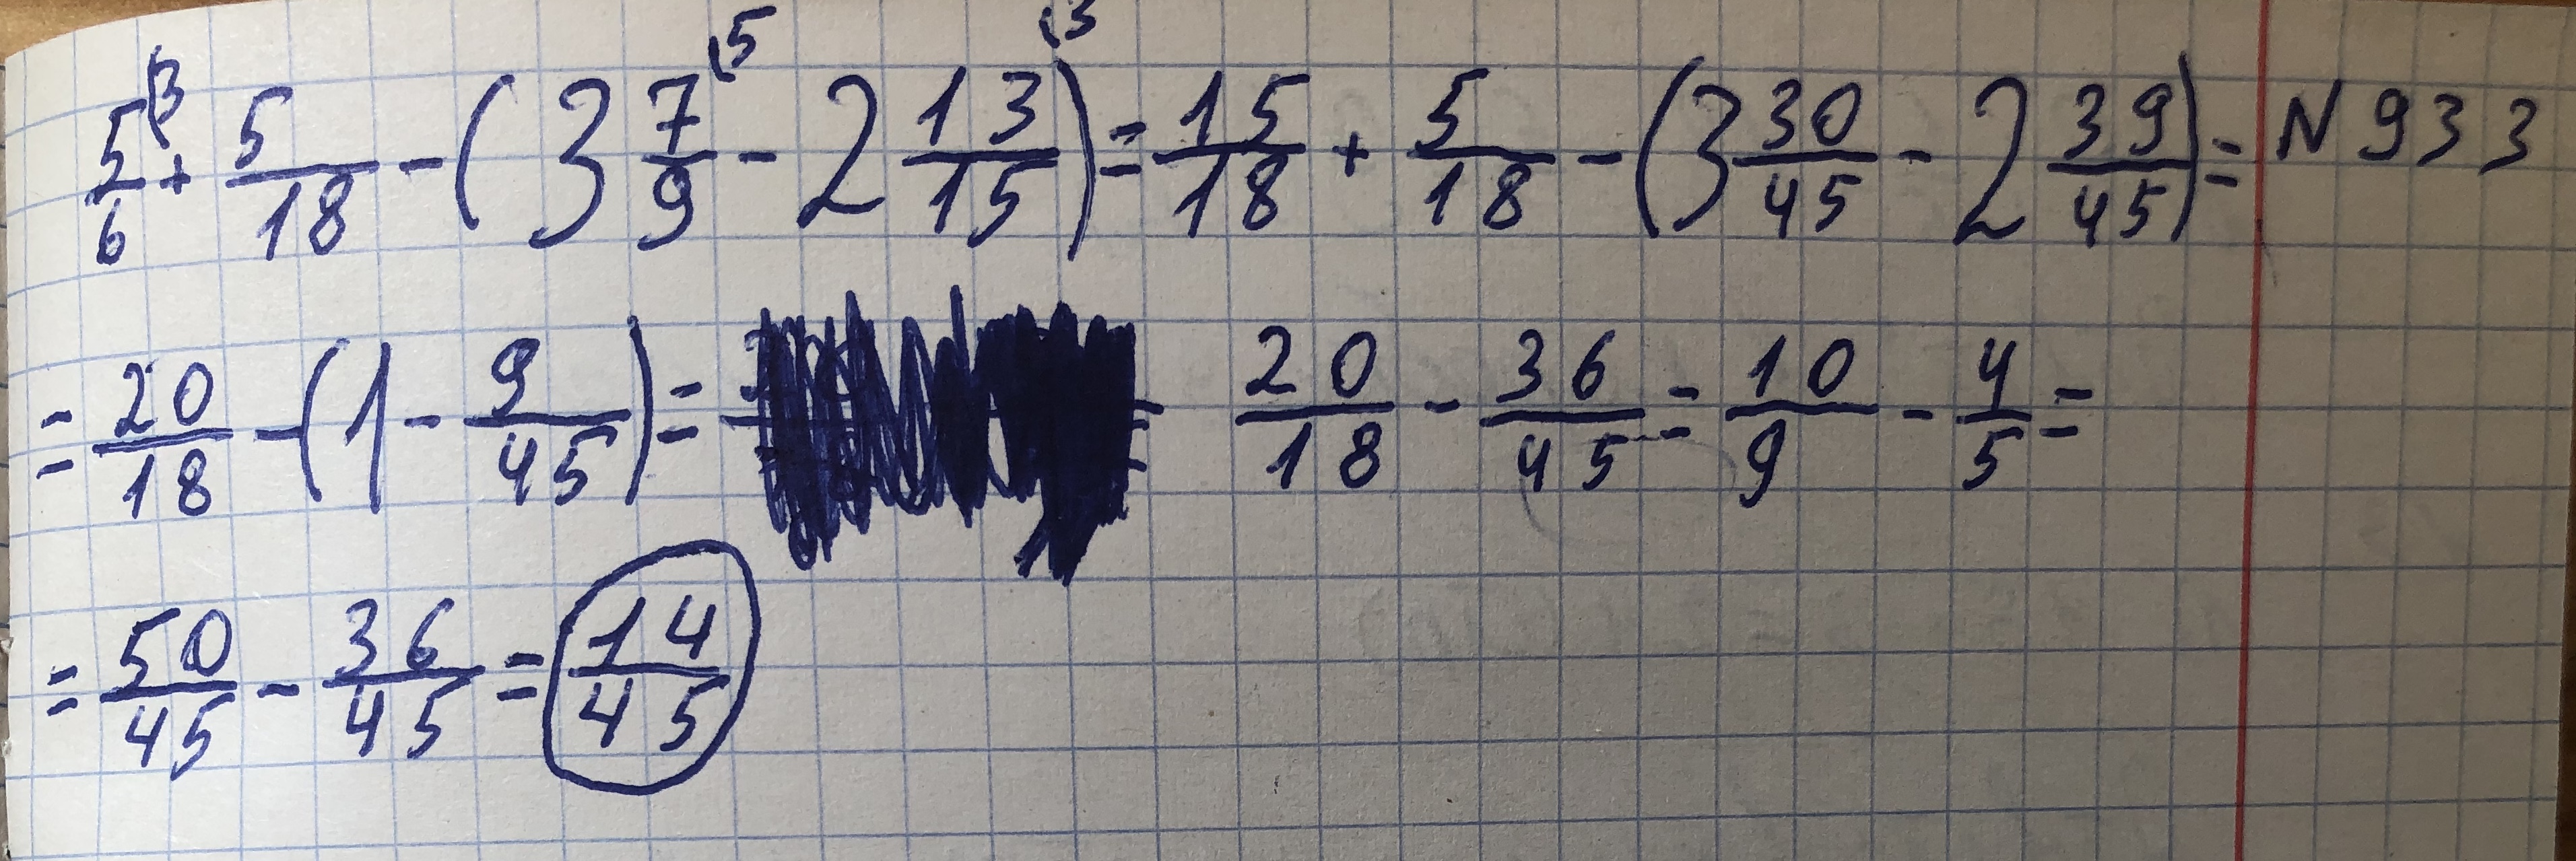 5/6 ⁽³ + 5/18 - (3 7/9 ⁽⁵ - 2 13/15 ⁽³) = 15/18 + 5/18 - (3 30/45 - 2 39/45) = N 933
= 20/18 - (1 - 9/45) = 20/18 - 36/45 = 10/9 - 4/5 =
= 50/45 - 36/45 = 14/45